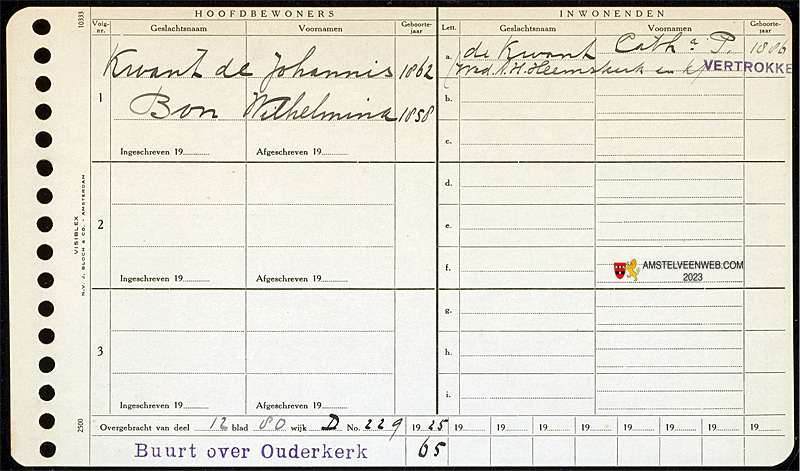 10333
HOOFDBEWONERS
INWONENDEN
Volg-
nr.
Geslachtsnaam
Voornamen
Geboorte-
jaar
Lett.
Geslachtsnaam
Voornamen
Geboorte-
jaar
Kwant de Johannis 1862
1
Bon Wilhelmina 1858
Ingeschreven 19
Afgeschreven 19
a. de Kwant Cath.a P. 1886
Heemskerk en VERTROKKE
b.
c.
2
Ingeschreven 19
Afgeschreven 19
d.
e.
f.
AMSTELVEENWEB.COM
2023
3
Ingeschreven 19
Afgeschreven 19
g.
h.
i.
VISIBLEX
N.V. J. BLOCH & CO. - AMSTERDAM
2500
Overgebracht van deel 12 blad 80 wijk D No. 229 1925 19 19 19 19 19 19 19 19
Buurt over Ouderkerk 65